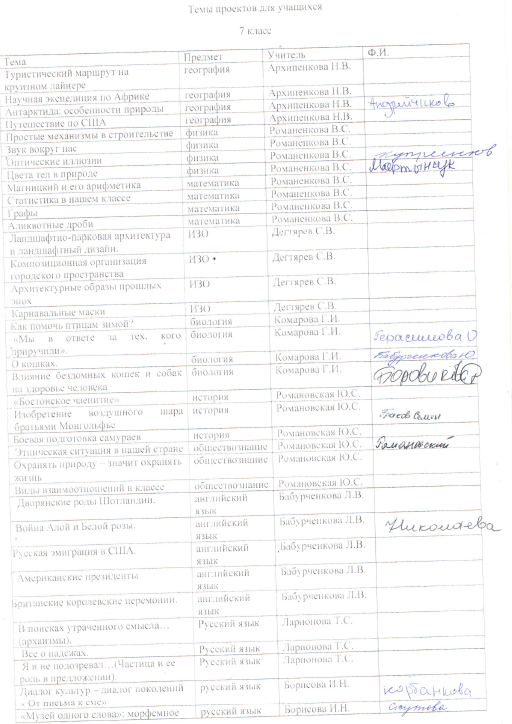 Темы проектов для учащихся
7 класс
Тема Предмет Учитель Ф.И.
Туристический маршрут на география Архипенкова Н.В.
круизном лайнере
Научная экспедиция по Африке география Архипенкова Н.В.
Антарктида: особенности природы география Архипенкова Н.В.
Путешествие по США география Архипенкова Н.В.
Простые механизмы в строительстве физика Романенкова В.С.
Звук вокруг нас физика Романенкова В.С.
Оптические иллюзии физика Романенкова В.С.
Цвета тел в природе физика Романенкова В.С. Мартынчук
Магницкий и его арифметика математика Романенкова В.С.
Статистика в нашем классе математика Романенкова В.С.
Графы математика Романенкова В.С.
Аликвотные дроби математика Романенкова В.С.
Ландшафтно-парковая архитектура ИЗО Дегтярев С.В.
и ландшафтный дизайн.
Композиционная организация ИЗО Дегтярев С.В.
городского пространства
Архитектурные образы прошлых ИЗО Дегтярев С.В.
эпох
Карнавальные маски ИЗО Дегтярев С.В.
Как помочь птицам зимой? биология Комарова Г.И.
«Мы в ответе за тех, кого биология Комарова Г.И. Герасимова О
приручили».
О кошках. биология Комарова Г.И. Бабурченкова Ю
Влияние бездомных кошек и собак биология Комарова Г.И.
на здоровье человека
«Бостонское чаепитие» история Романовская Ю.С.
Изобретение воздушного шара история Романовская Ю.С.
братьями Монгольфье
Боевая подготовка самураев история Романовская Ю.С.
Этническая ситуация в нашей стране обществознание Романовская Ю.С. Романовский
Охранять природу – значит охранять обществознание Романовская Ю.С.
жизнь
Виды взаимоотношений в классе обществознание Романовская Ю.С.
Дворянские роды Шотландии. английский Бабурченкова Л.В.
язык
Война Алой и Белой розы. английский Бабурченкова Л.В. Николаева
язык
Русская эмиграция в США. английский Бабурченкова Л.В.
язык
Американские президенты английский Бабурченкова Л.В.
язык
Британские королевские церемонии. английский Бабурченкова Л.В.
язык
В поисках утраченного смысла… Русский язык Ларионова Т.С.
(архаизмы).
Все о падежах. Русский язык Ларионова Т.С.
Я и не подозревал…(Частица и ее Русский язык Ларионова Т.С.
роль в предложении).
Диалог культур – диалог поколений русский язык Борисова И.Н. Корбанкова
- От письма к смс»
«Музей одного слова»: морфемное русский язык Борисова И.Н.